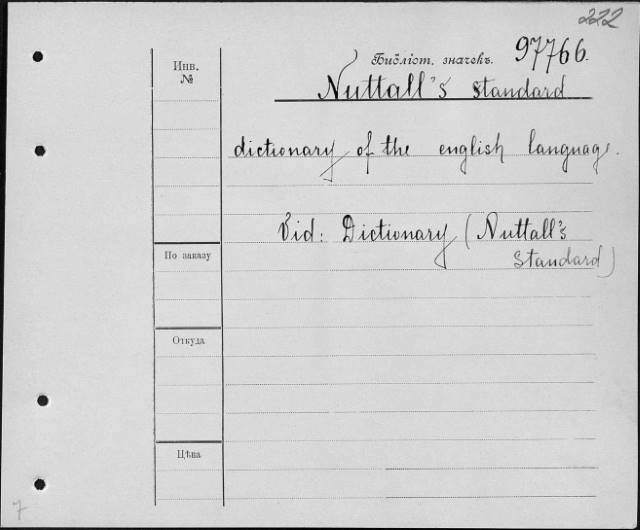 222
Инв.
№
Библіот. значекъ. 97766.
Nuttall's standard
dictionary of the english language.
Vid: Dictionary (Nuttall's
Standard)
По заказу
Откуда
Цѣна
7